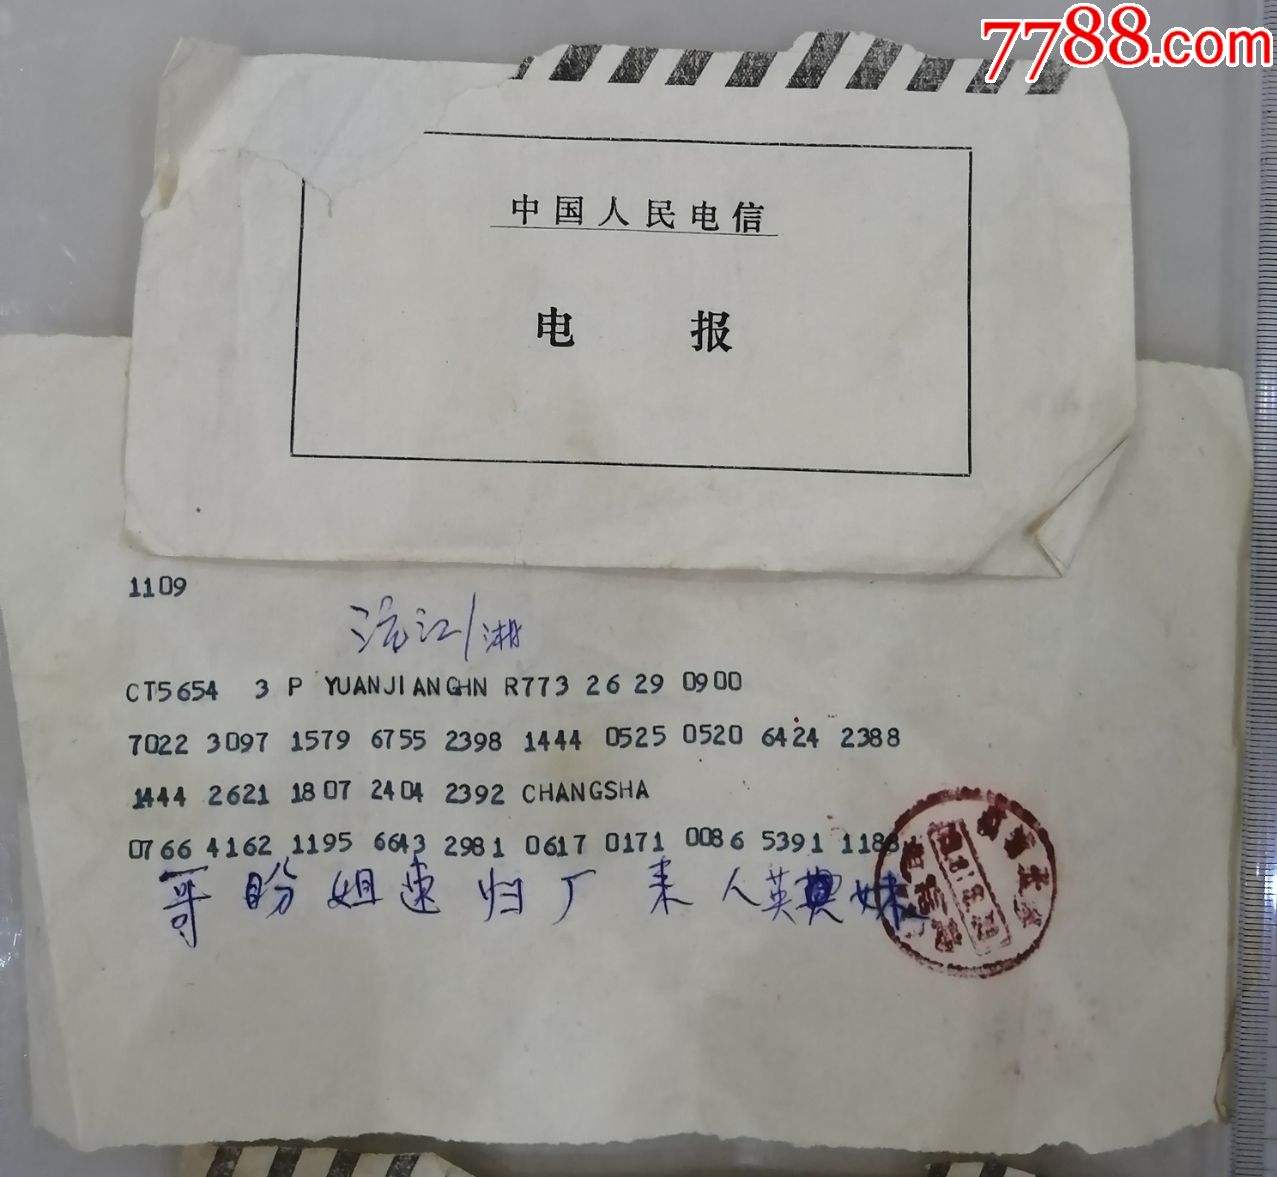 7788.com
中国人民电信
电报
1109
沅江/湘
CT5654 3 P YUANJIANGHN R773 26 29 0900
7022 3097 1579 6755 2398 1444 0525 0520 6424 2388
1444 2621 1807 2404 2392 CHANGSHA
0766 4162 1195 6643 2981 0617 0171 0086 5391 1188
哥盼姐速归厂来人英妹